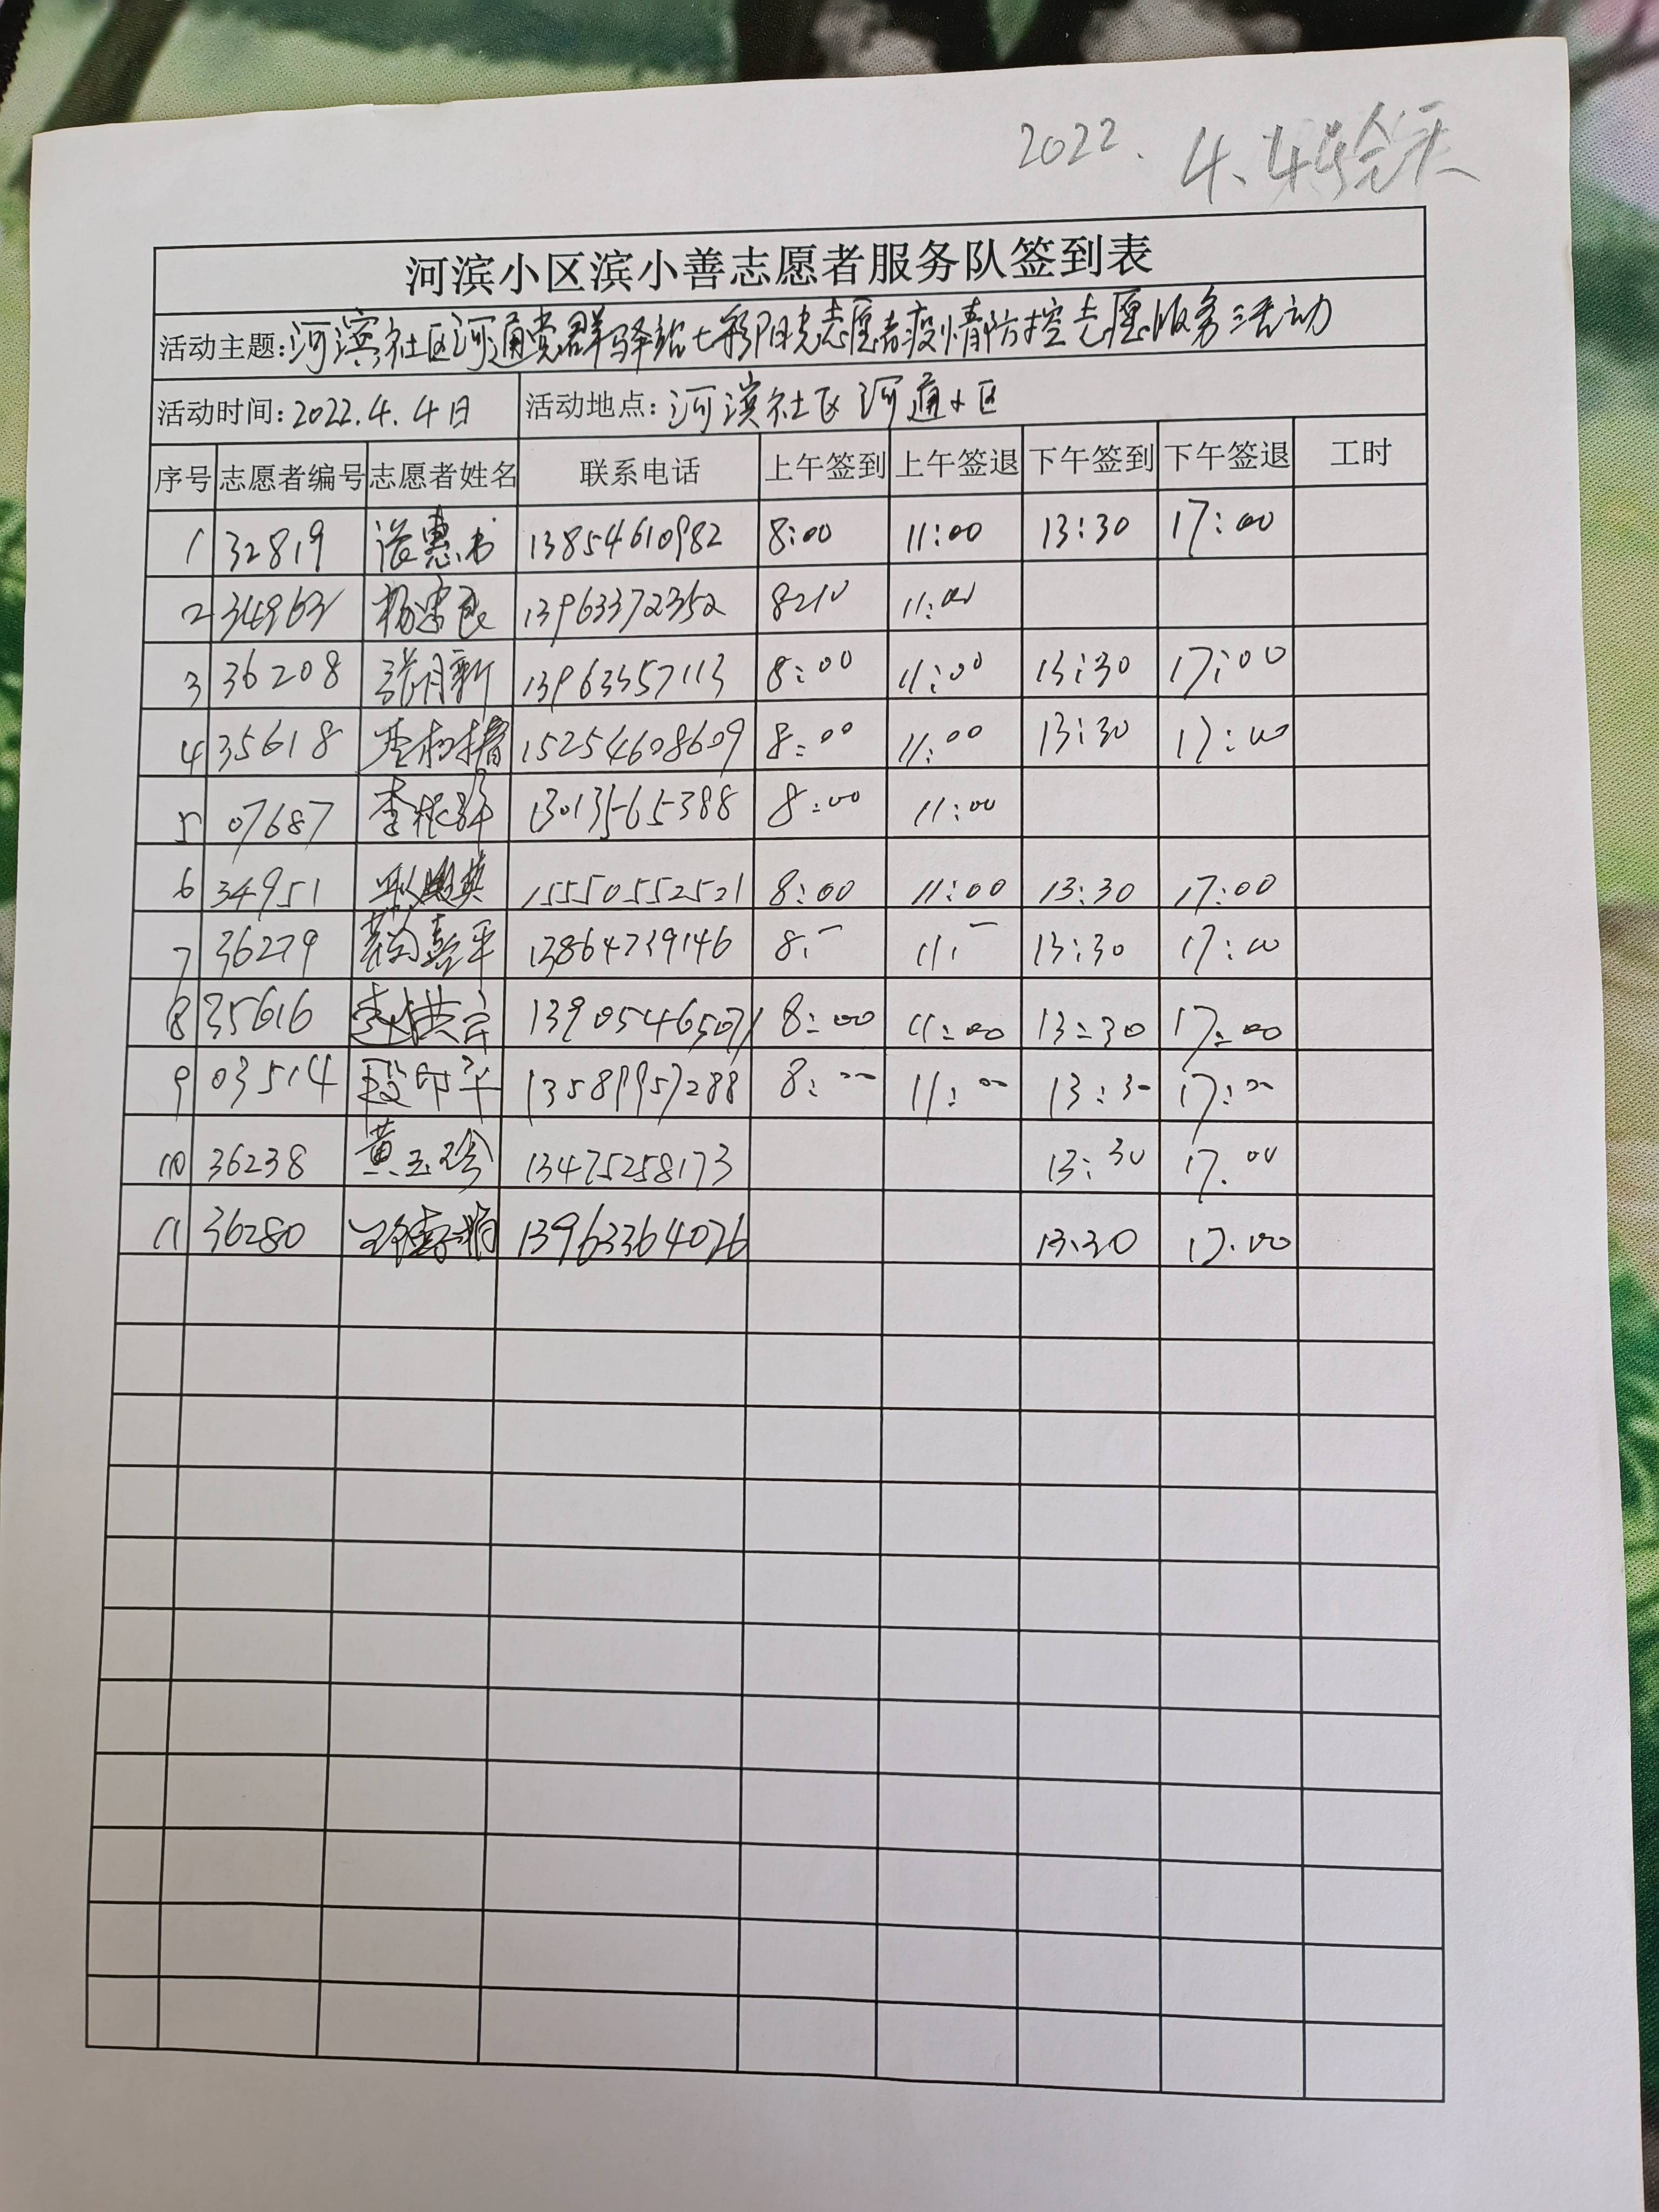 2022. 4.4号全天
河滨小区滨小善志愿者服务队签到表
活动主题:河滨社区河通党群驿站七彩阳光志愿者疫情防控志愿服务活动
活动时间:2022.4.4日 活动地点:河滨社区河通小区
序号 志愿者编号 志愿者姓名 联系电话 上午签到 上午签退 下午签到 下午签退 工时
1 32819 惠 13854610982 8:00 11:00 13:30 17:00
2 34963 杨 良 13963372352 11:00
3 36208 张月新 13963357113 8:00 11:00 13:30 17:00
4 35618 李 15254608609 8:00 11:00 13:30 17:00
5 07687 李 13013565388 8:00 11:00
6 34951 英 15550552521 8:00 11:00 13:30 17:00
7 36279 平 13864739146 8: 11: 13:30 17:00
8 35616 13905465071 8:00 11:00 13:30 17:00
9 03514 段印平 13589957288 8:00 11:00 13:30 17:00
10 36238 黄玉珍 13475258173 13:30 17.00
11 36280 13963364026 13:30 17:00